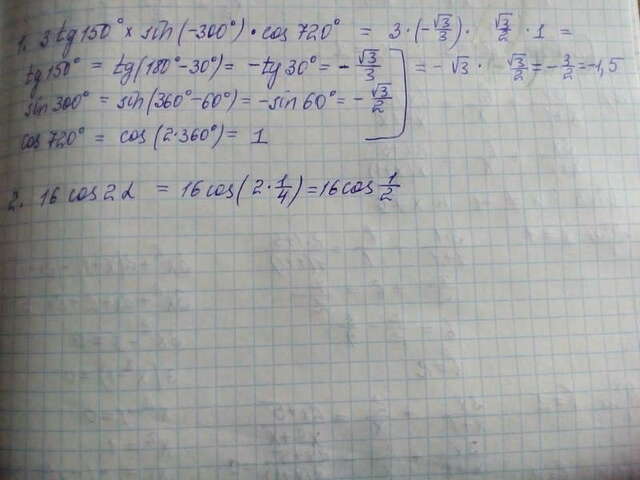 1. 3tg150° × sin(-300°)·cos720° = 3·(-√3/3)· √3/2 ·1 =
tg150° = tg(180°-30°)= -tg30°= -√3/3 = -√3 · √3/2 = -3/2 = -1,5
sin300° = sin(360°-60°)= -sin60°= -√3/2
cos720° = cos(2·360°)= 1
2. 16cos2α = 16cos(2·1/4)=16cos1/2